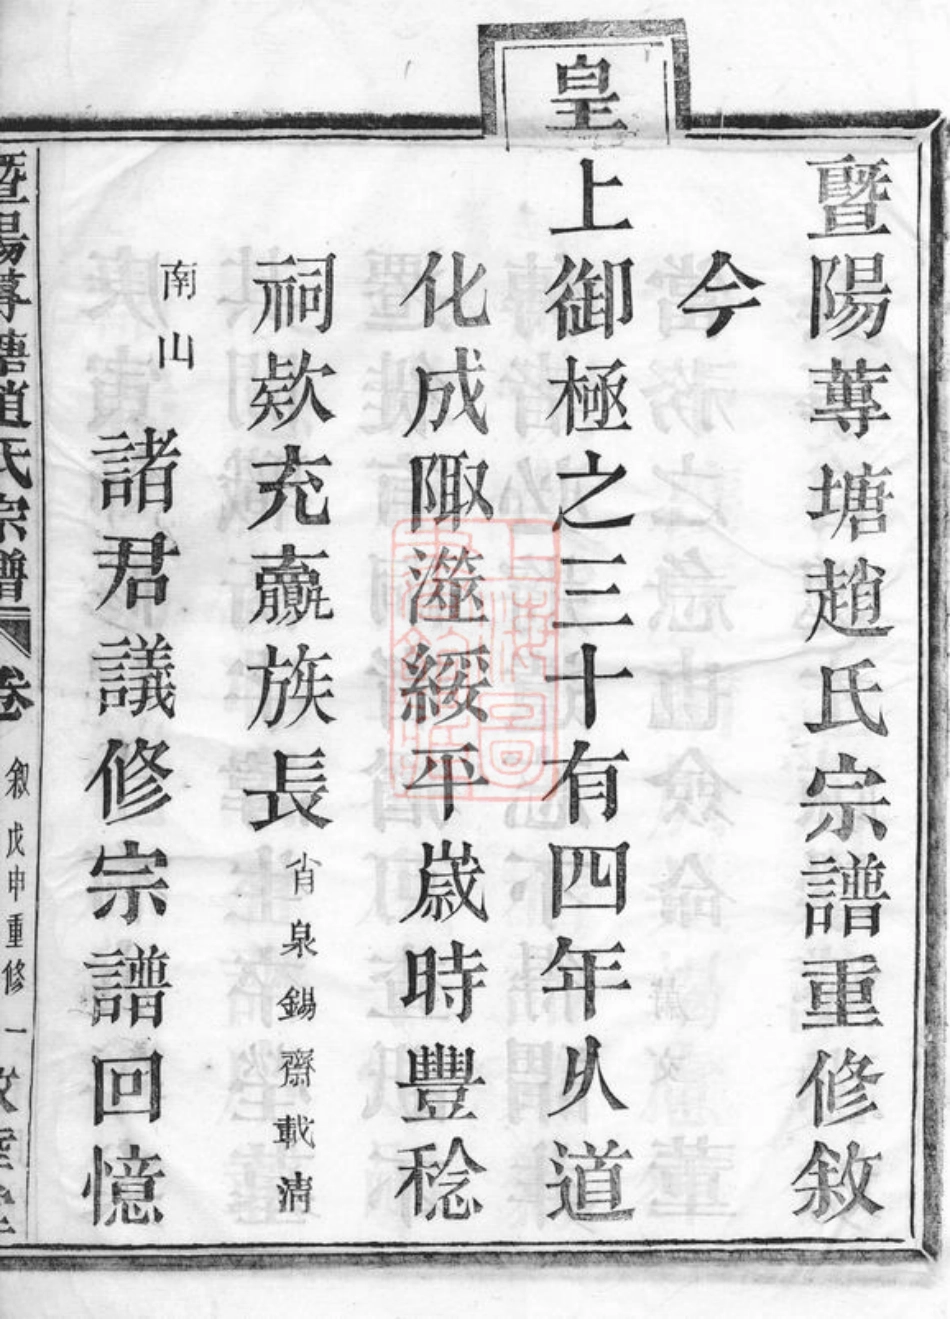 暨陽蓴塘趙氏宗譜重修敘
今
皇上御極之三十有四年久道
化成陬澨綏平歲時豐稔
祠欵充贏族長肖泉錫齋載清
南山諸君議修宗譜回憶
暨陽蓴塘趙氏宗譜 卷 敘 戊申重修 一
上海圖書館藏